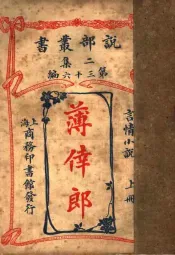 說部叢書
二集
第三十六編
言情小說
上冊
薄倖郎
上海
商務印書館發行